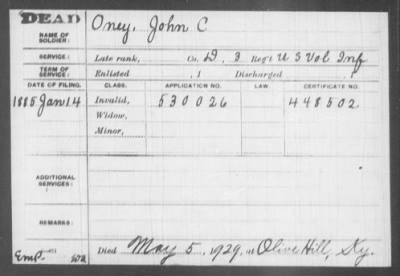 DEAD
NAME OF SOLDIER:
Oney, John C
SERVICE:
Late rank, Co. D, 3 Reg't U S Vol Inf
TERM OF SERVICE:
Enlisted , 1 Discharged , 1
DATE OF FILING. CLASS. APPLICATION NO. LAW CERTIFICATE NO.
1885 Jan 14 Invalid, 530026 448502
Widow,
Minor,
ADDITIONAL SERVICES:
REMARKS:
Died May 5, 1929, at Olive Hill, Ky.